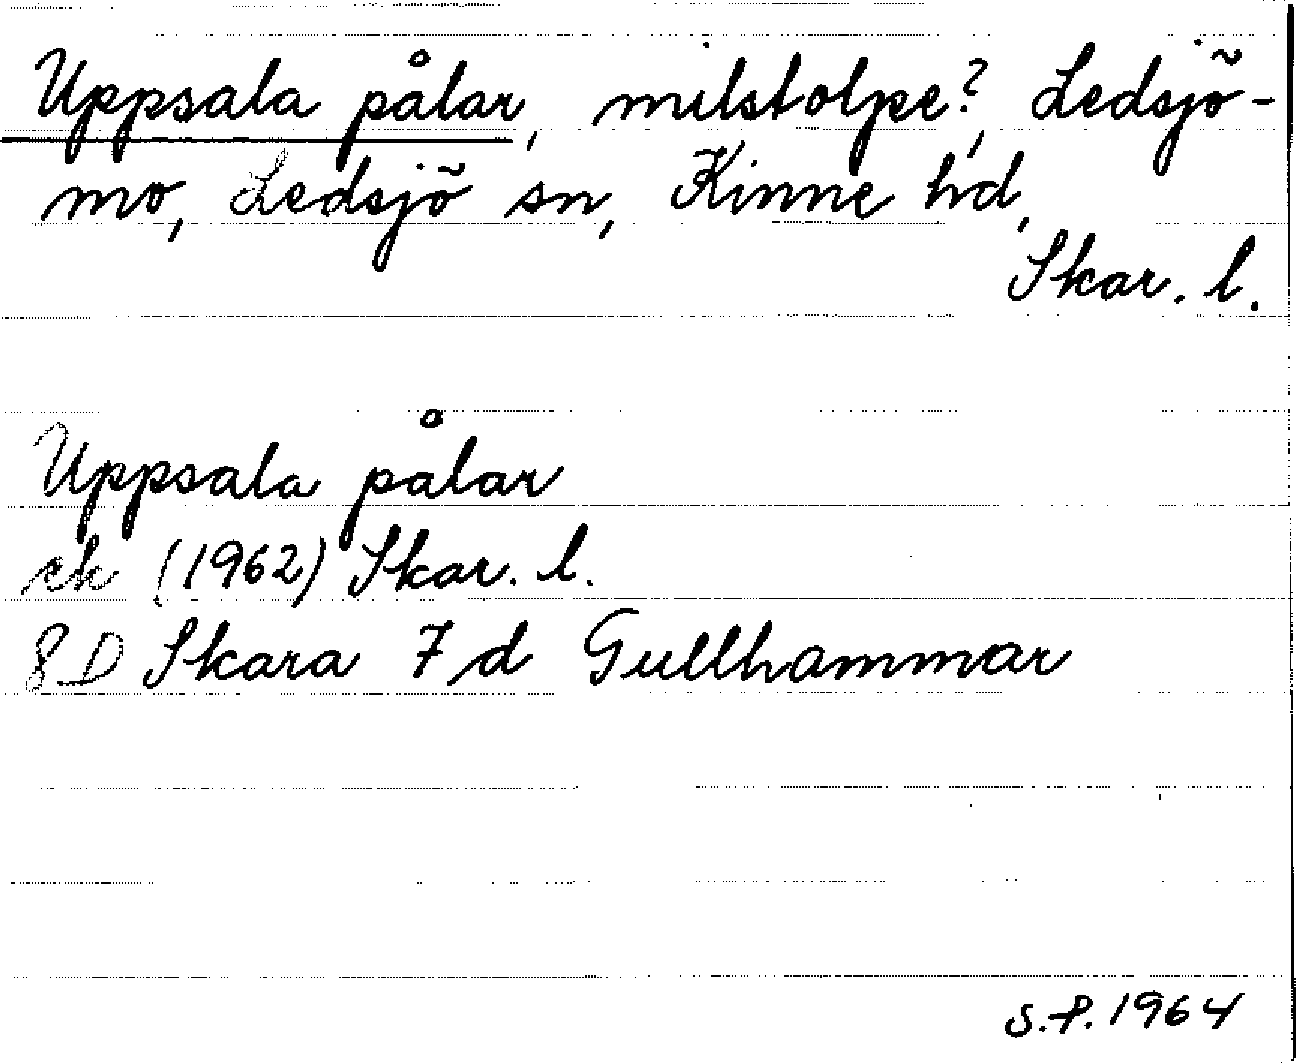 Uppsala pålar, milstolpe?, Ledsjö-
mo, Ledsjö sn, Kinne hd,
Skar. l.
Uppsala pålar
ek (1962) Skar. l.
8D Skara 7d Gullhammar
S.P. 1964